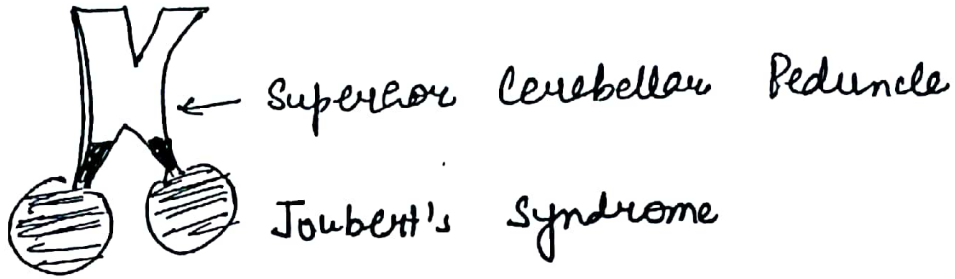 Superior Cerebellar Peduncle
Joubert's Syndrome